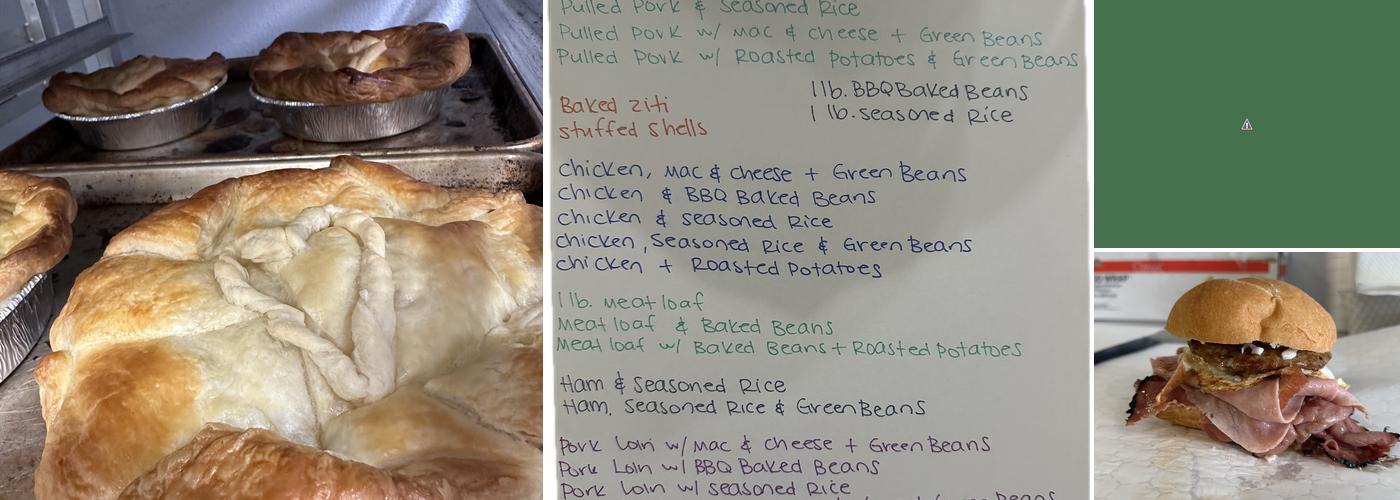 Pulled Pork & Seasoned Rice
Pulled Pork w/ Mac & cheese + Green Beans
Pulled Pork w/ Roasted Potatoes & Green Beans
1 lb. BBQ Baked Beans
1 lb. seasoned Rice
Baked ziti
stuffed shells
chicken, Mac & cheese + Green Beans
chicken & BBQ Baked Beans
chicken & seasoned Rice
chicken, Seasoned Rice & Green Beans
chicken + Roasted Potatoes
1 lb. Meatloaf
Meatloaf & Baked Beans
Meatloaf w/ Baked Beans + Roasted Potatoes
Ham & Seasoned Rice
Ham, Seasoned Rice & Green Beans
Pork Loin w/ Mac & cheese + Green Beans
Pork Loin w/ BBQ Baked Beans
Pork Loin w/ seasoned Rice